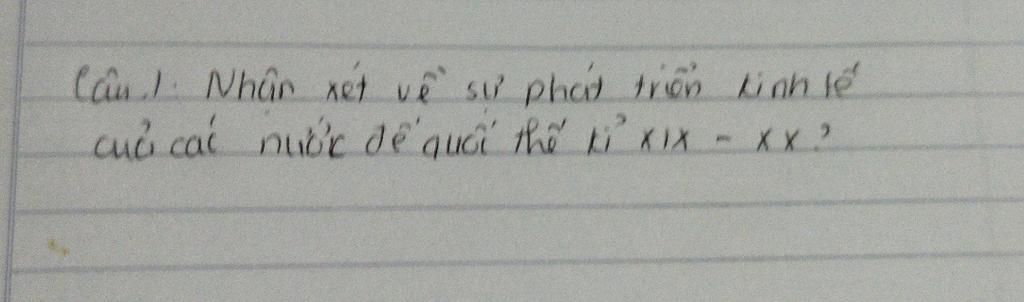 Câu.1. Nhận xét về sự phát triển kinh tế
cuả các nước đế quốc thế kỉ XIX - XX?